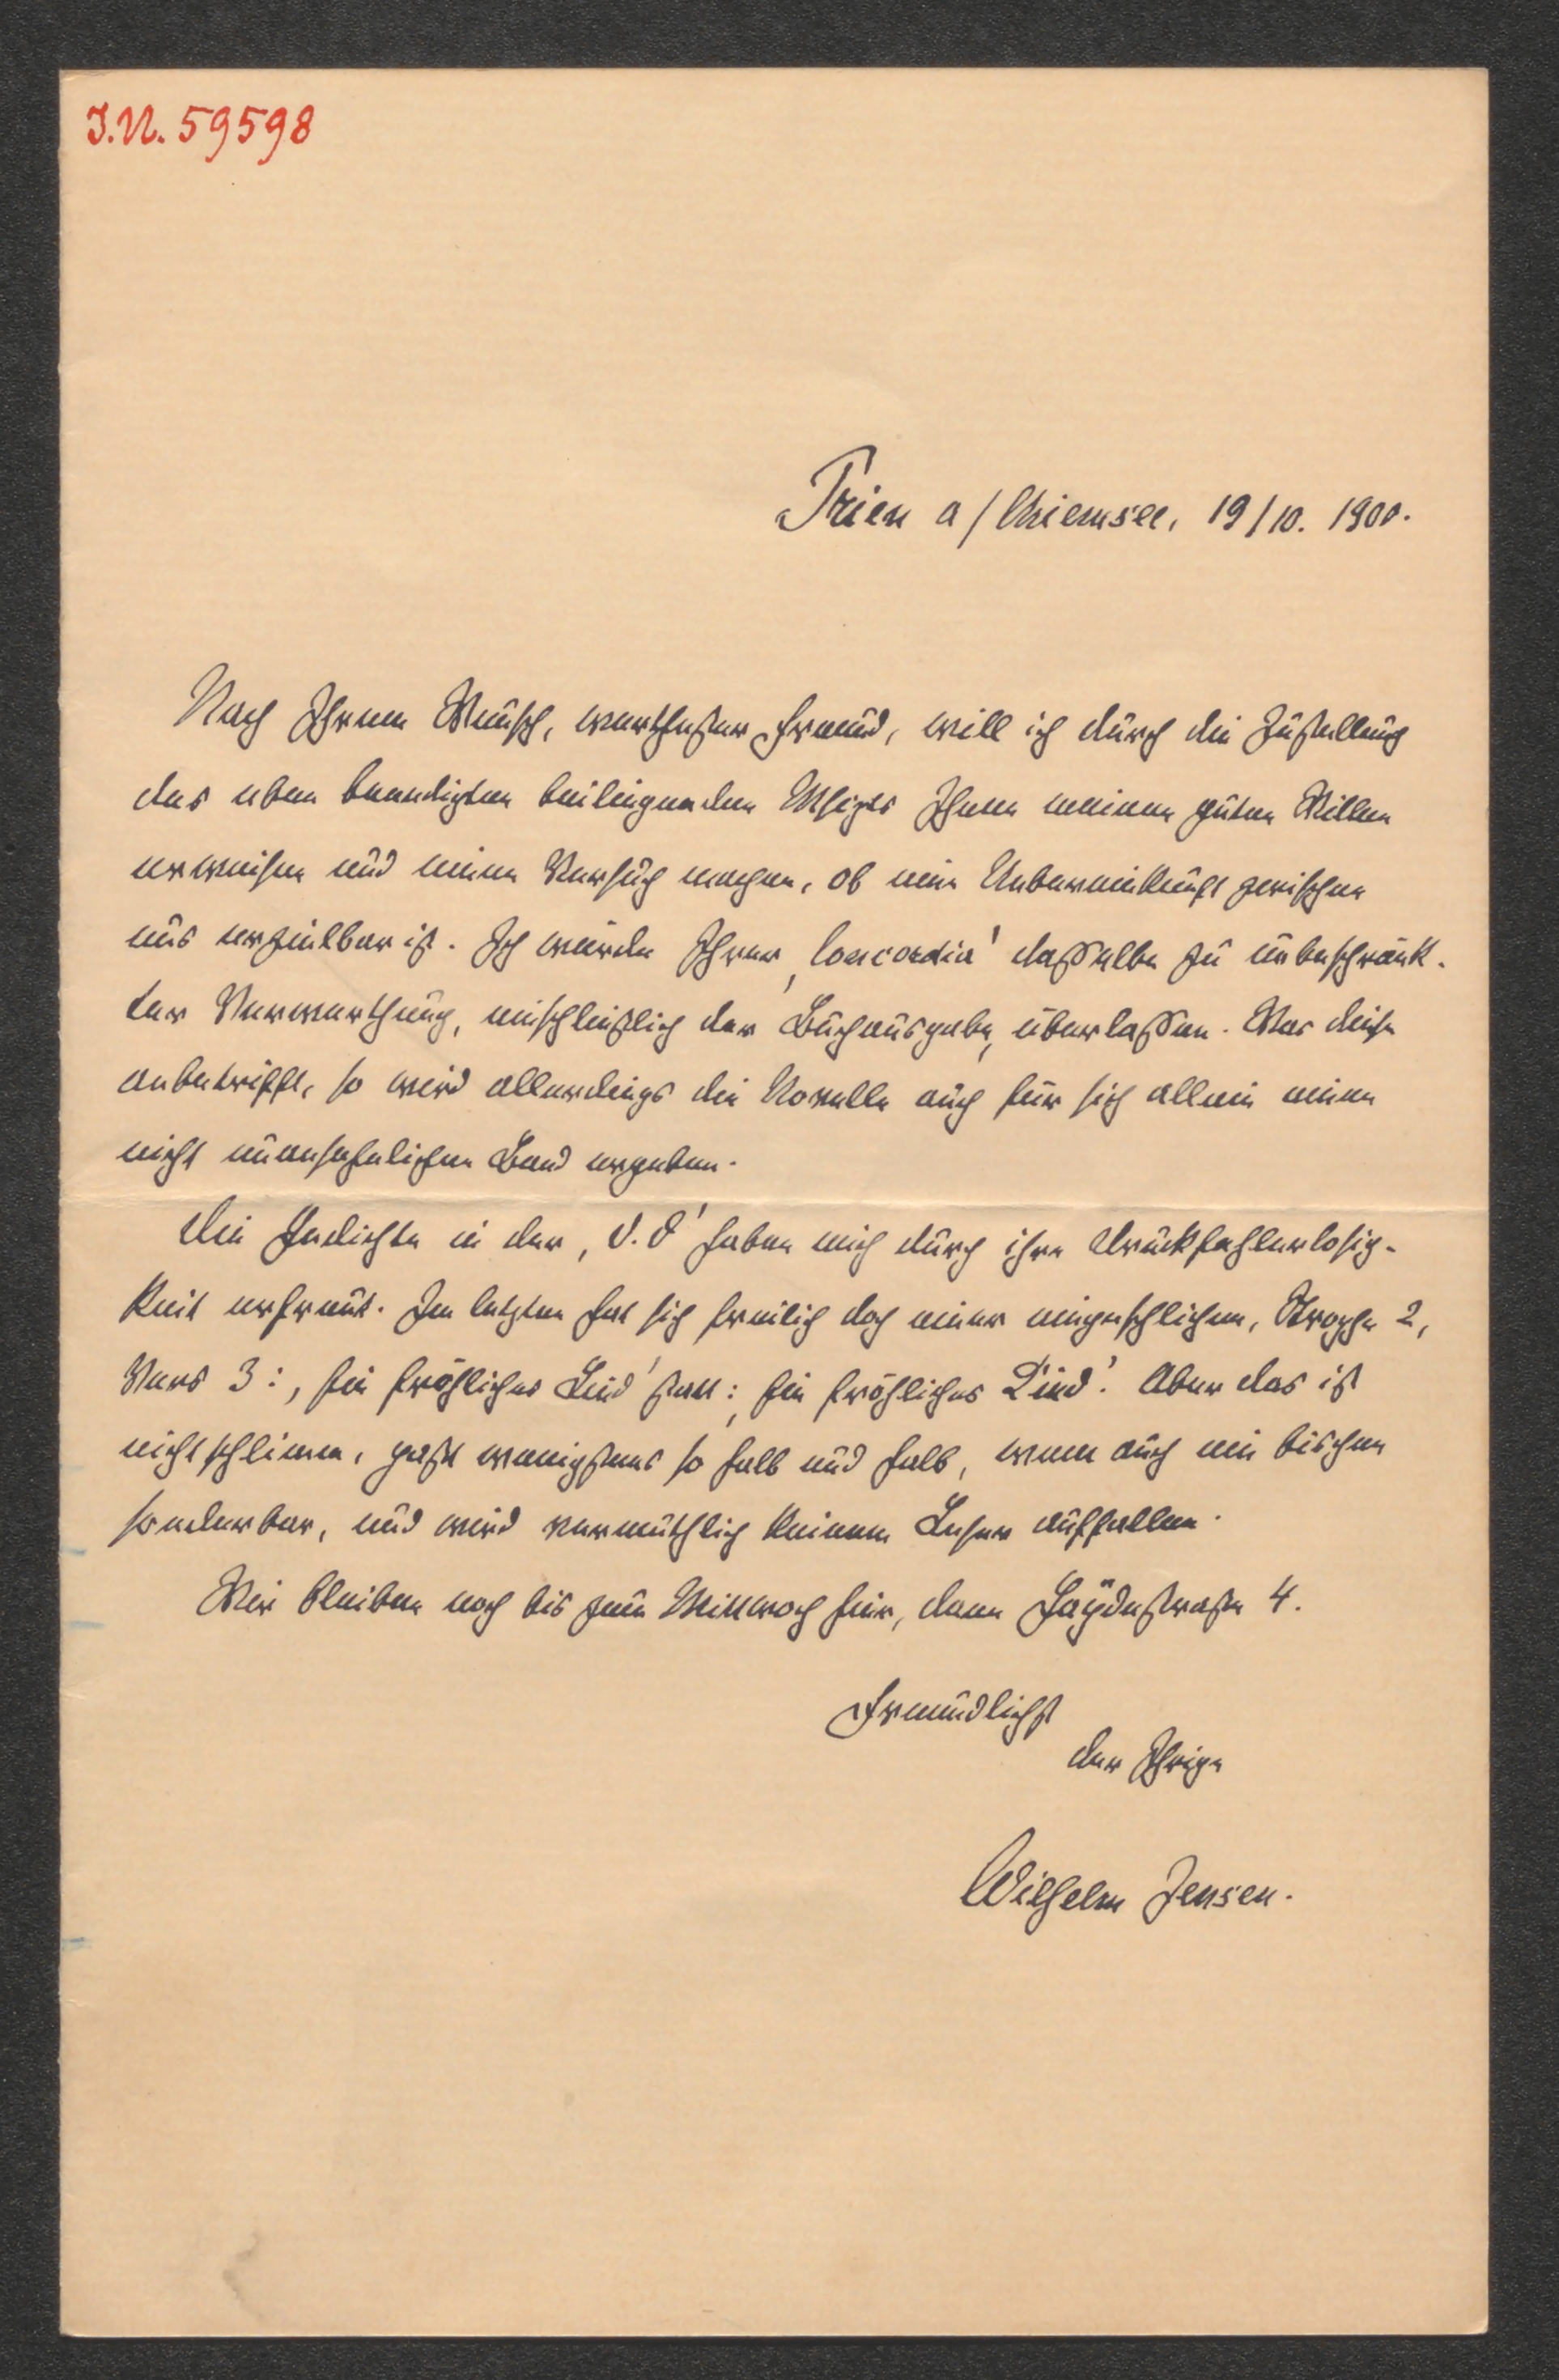 J.N. 59598
Prien a/Chiemsee, 19/10. 1900.
Nach Ihrem Wunsch, werthester Freund, will ich durch die Zustellung
des eben beendigten beiliegenden Mscpts Ihnen meinen guten Willen
erweisen und einen Versuch machen, ob eine Uebereinkunft zwischen
uns erzielbar ist. Ich würde Ihrer ‚Concordia' dasselbe zu unbeschränk-
ter Verwerthung, einschließlich der Buchausgabe, überlassen. Was diese
anbetrifft, so wird allerdings die Novelle auch für sich allein einen
nicht unansehnlichen Band ergeben.
Die Gedichte in der ‚V. D' haben mich durch ihre Druckfehlerlosig-
keit erfreut. Im letzten hat sich freilich doch einer eingeschlichen, Strophe 2,
Vers 3: ‚sei fröhliches Lied' statt: ‚sei fröhliches Kind'. Aber das ist
nicht schlimm, paßt wenigstens so halb und halb, wenn auch ein bischen
sonderbar, und wird vermuthlich keinem Leser auffallen.
Wir bleiben noch bis zum Mittwoch hier, dann Haydnstraße 4.
Freundlichst
der Ihrige
Wilhelm Jensen.